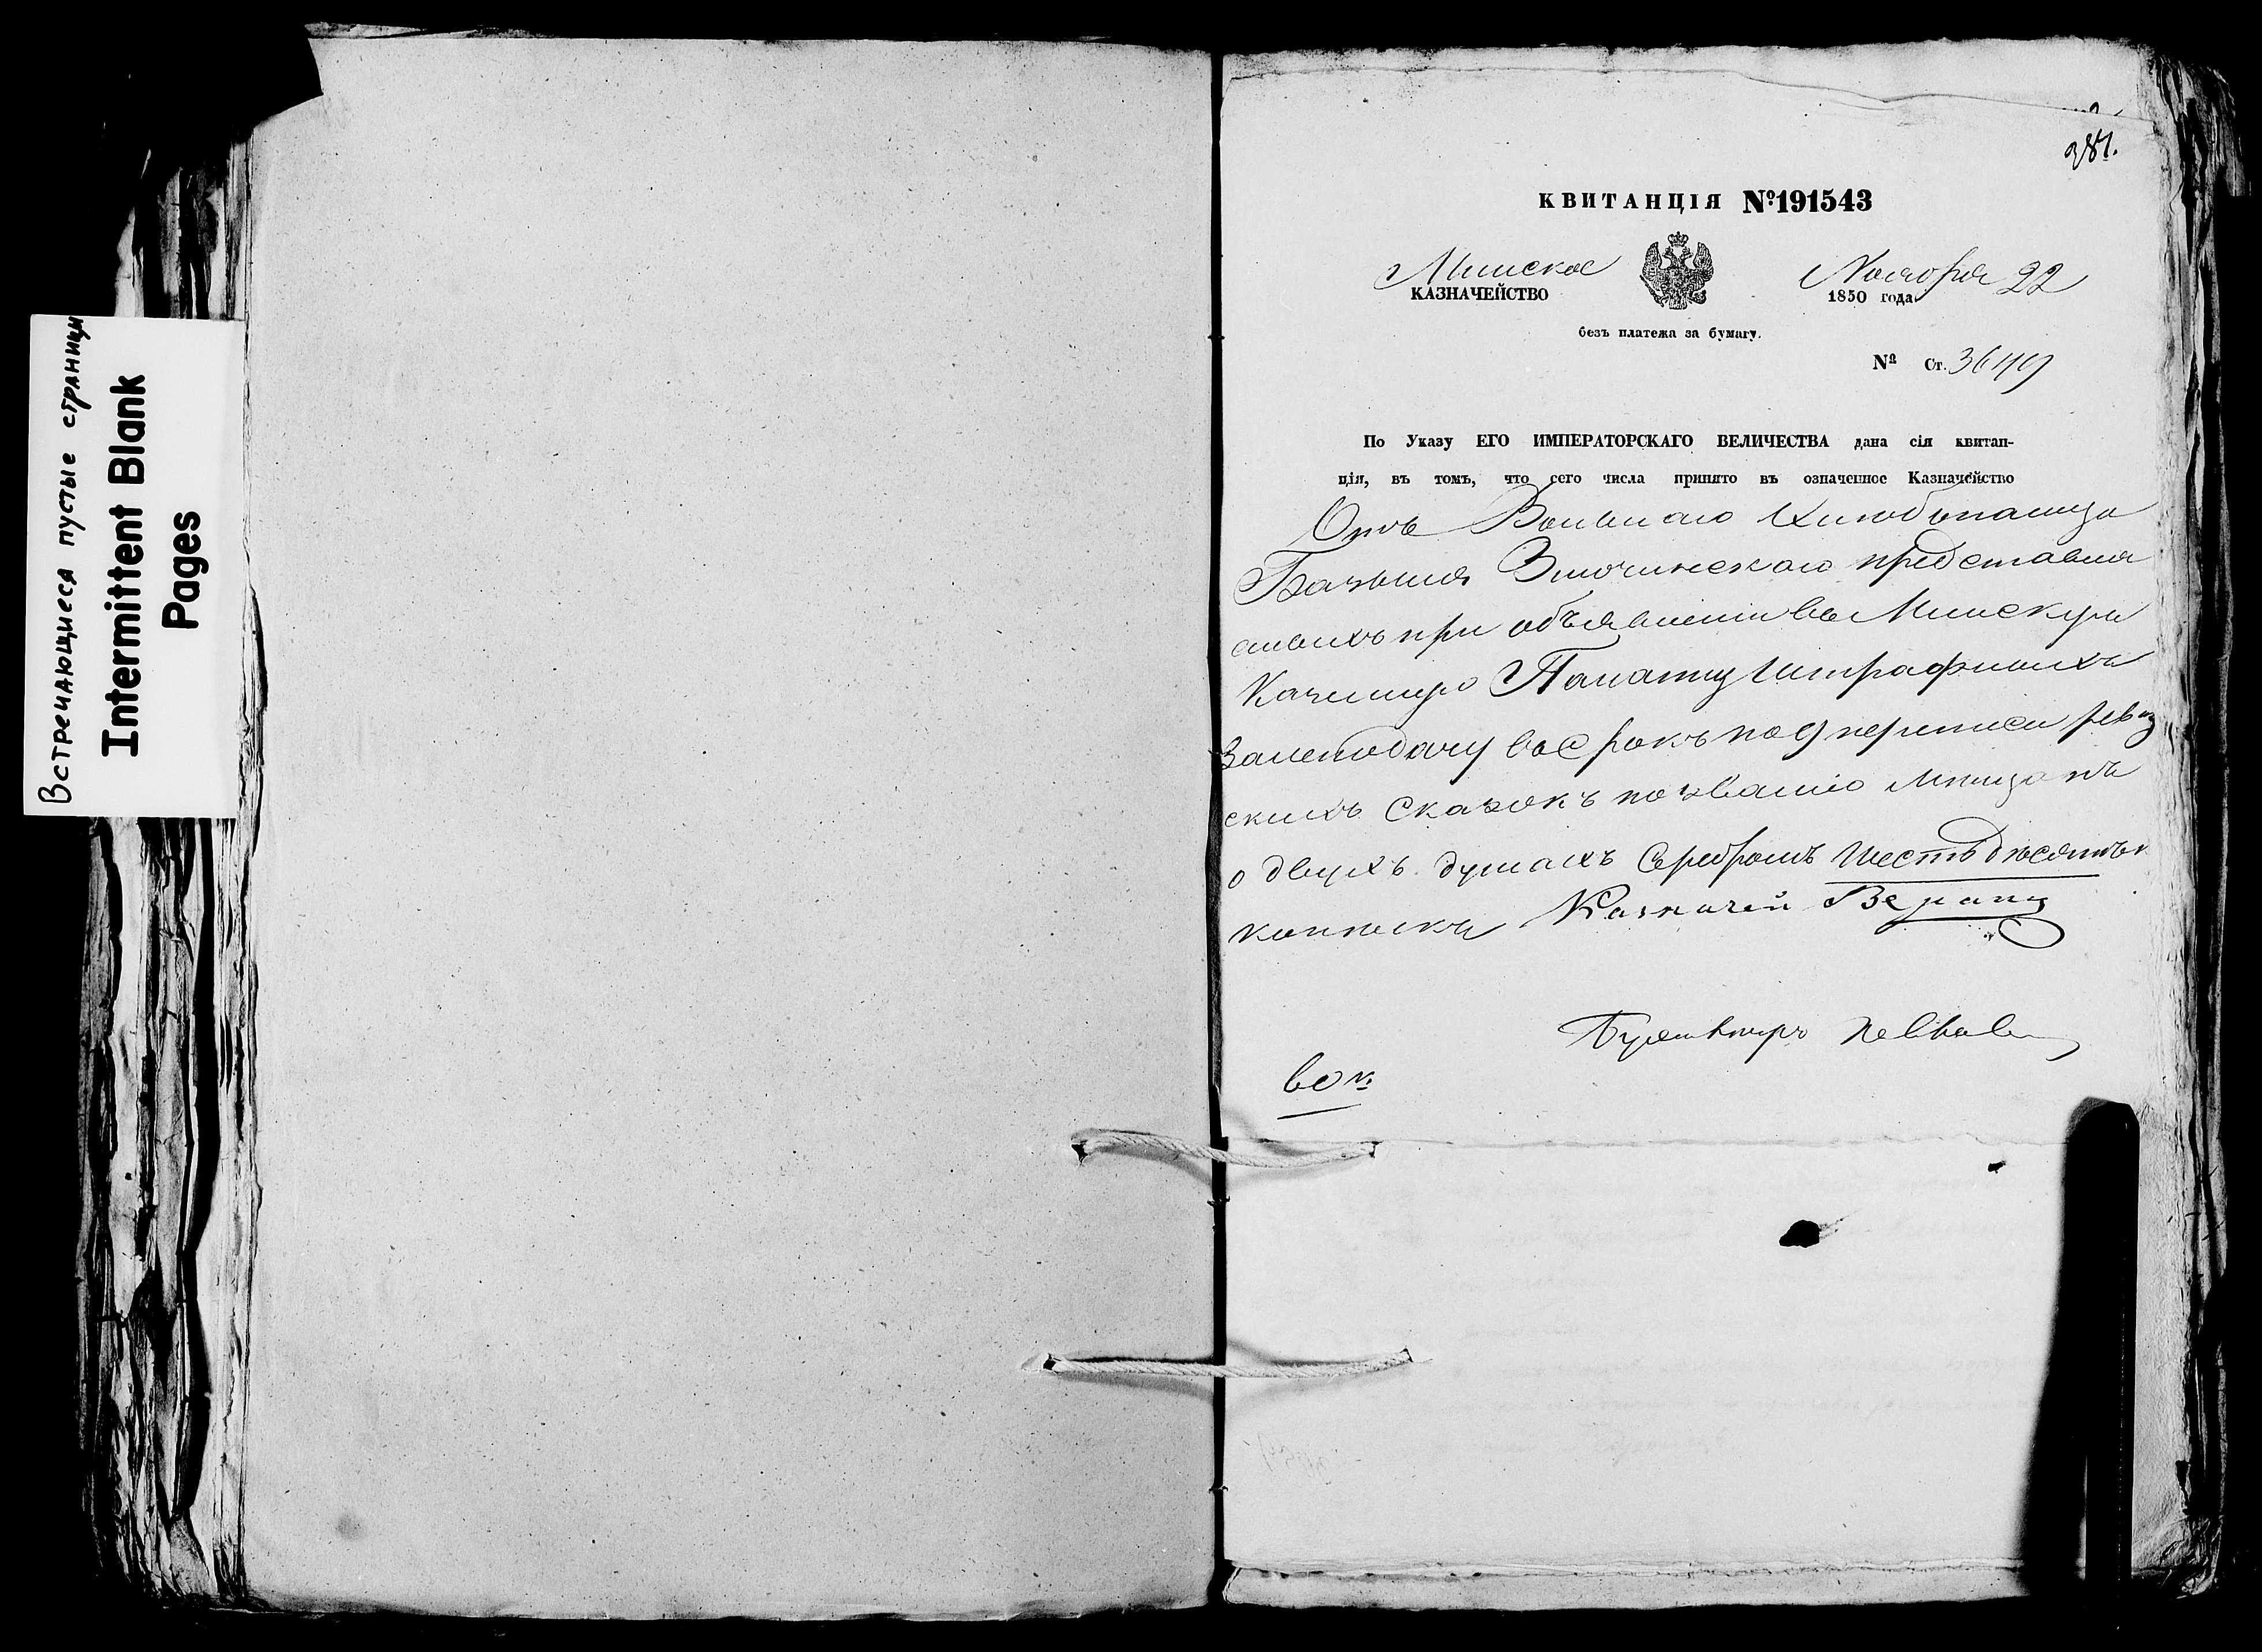 Встречающиеся пустые страницы
Intermittent Blank
Pages
381.
КВИТАНЦІЯ №191543
Минское
КАЗНАЧЕЙСТВО
Ноября 22
1850 года
безъ платежа за бумагу.
№ Ст. 3649
По Указу ЕГО ИМПЕРАТОРСКАГО ВЕЛИЧЕСТВА дана сія квитан-
ція, въ томъ, что сего числа принято въ означенное Казначейство
Отъ Вольнаго Хлюбопашца
представлен
ныхъ при объявленіи въ Минскую
Казенную Палату Штрафныхъ
За неподачу въ Срокъ по 9 переписи ревиз
скихъ Сказокъ по званію Мищанъ
о двухъ душахъ Серебромъ Шестьдесятъ
копѣекъ Казначей
Бухгалтеръ
60 к.